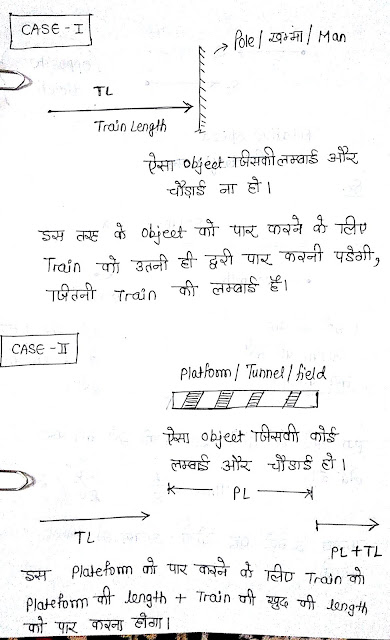 CASE-I
Pole/खम्भा/Man
TL
Train Length
ऐसा object जिसकी लम्बाई और
चौड़ाई ना हो।
इस तरह के object को पार करने के लिए
Train को उतनी ही दूरी पार करनी पडेगी,
जितनी Train की लम्बाई है।
CASE-II
Platform/Tunnel/field
ऐसा object जिसकी कोई
लम्बाई और चौडाई हो।
PL
TL
PL+TL
इस Plateform को पार करने के लिए Train को
Plateform की length + Train की खुद की length
को पार करना होगा।